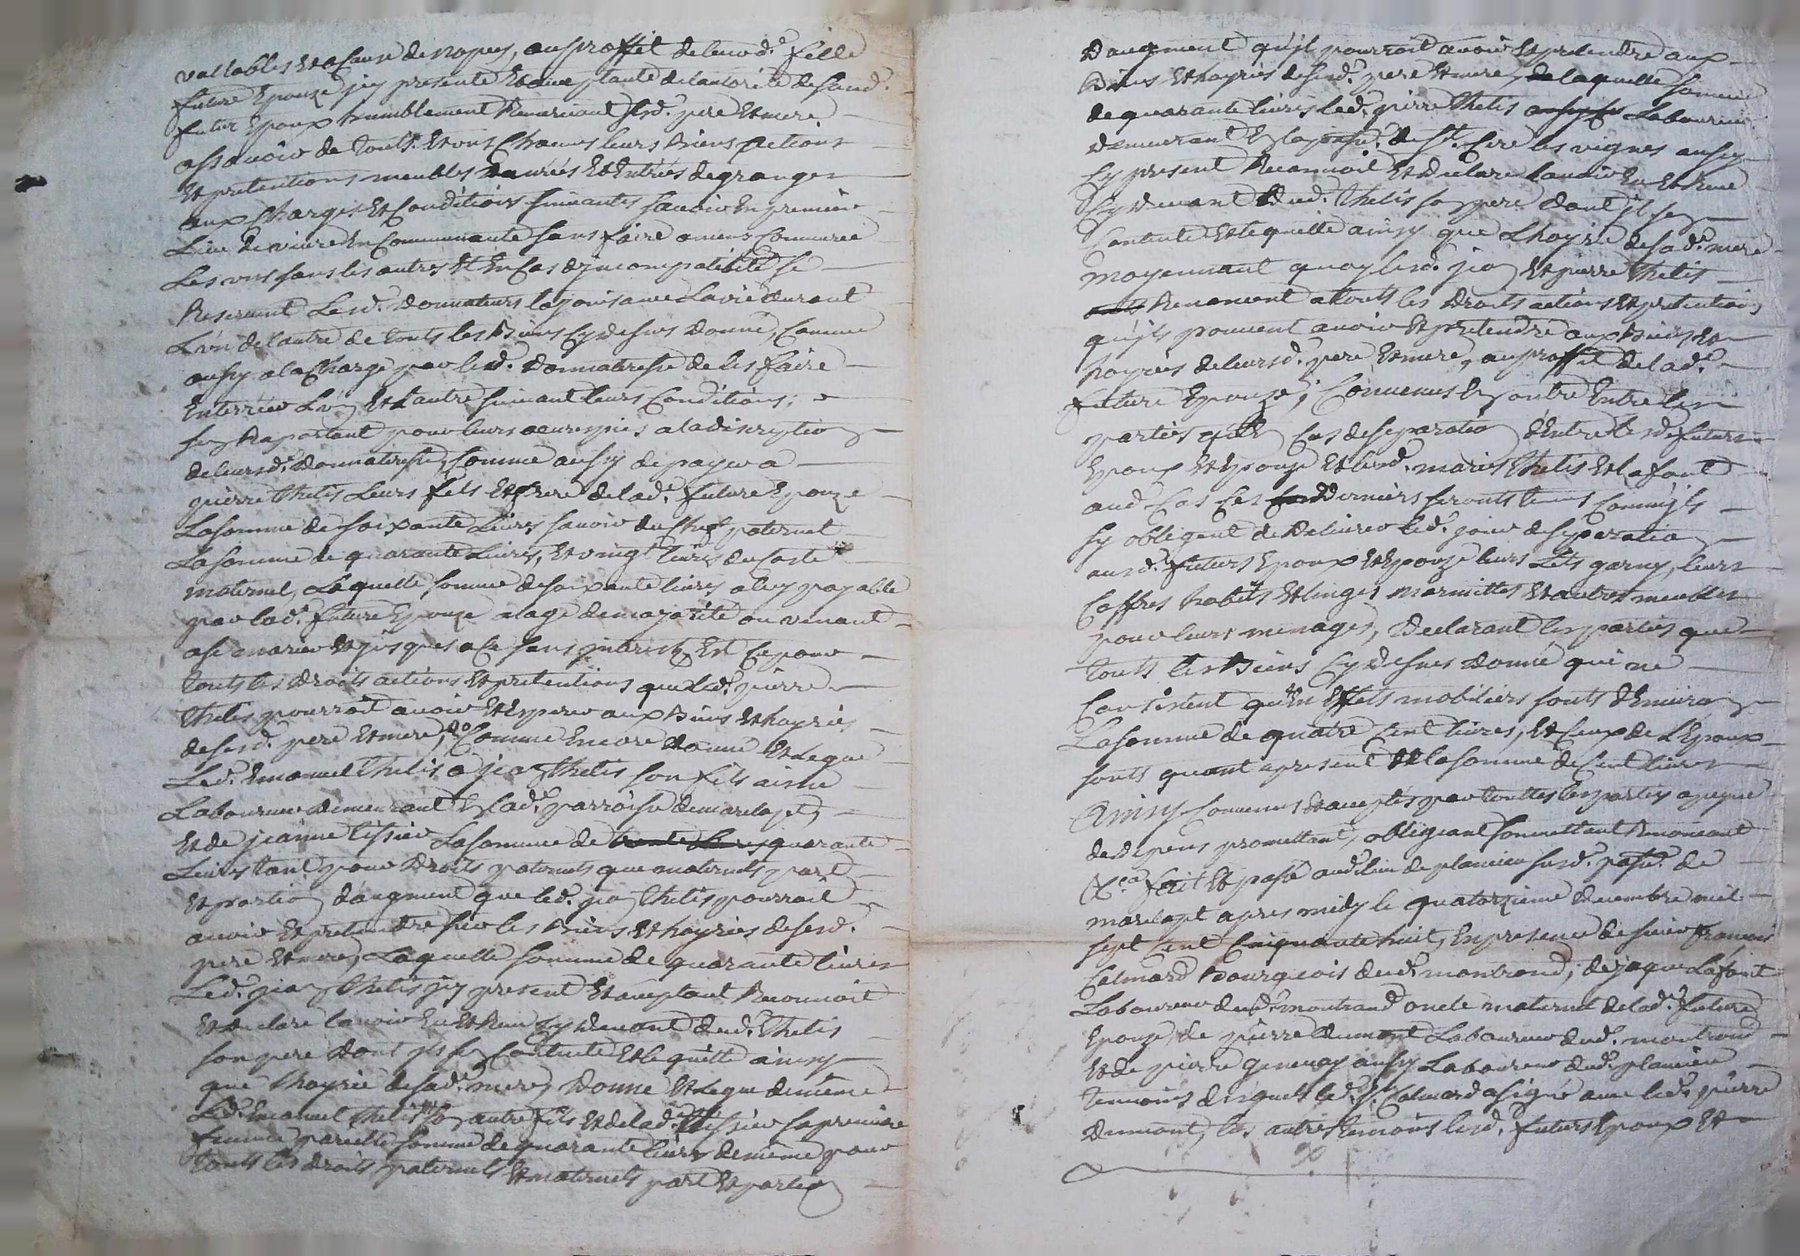 vallables et a cause de nopces, au proffit de leurd.e fille
future Epouze jcy presente et acceptante de l'autorité de sond.
futur Epoux humblement Remerciant sesd. pere et mere
assavoir de touts et uns chacuns leurs biens actions
et pretentions meubles danrées et Entrées de granges
aux charges et Conditions suivantes savoir En premier
Lieu de vivre En Communauté sans faire aucun Commerce
Les uns sans les autres Et En Cas d'jncompatibilité se
Reservent Lesd. donnateurs la jouisance La vie durant
L'un de l'autre de touts les biens cy dessus donné, Comme
aussy a la Charge par lad. donnatresse de les faire
Enterrer L'un et l'autre suivant leurs Conditions,
s'en Raportant pour leurs œuvres pies a la discreption
de leursd. donnatresse, Comme aussy de payer a
pierre thelis Leurs fils et frere de lad.e future Epouze
La somme de soixante Livres savoir du chef paternel
La somme de quarante Livres, et vingt livres du costé
maternel, Laquelle somme de soixante livres a luy payable
par lad.e future Epouze a l'age de majorité ou venant
a se marier et jusques a ce sans jnterest, Et Ce pour
touts les droits actions et pretentions que led. pierre
thelis pourroit avoir et Esperer aux biens et hoyries
de sesd. pere et mere, Comme Encore donne et Legue
Led. Emanuel thelis a jean thelis son fils aisné
Laboureur demeurant En lad.e parroisse de marclopt,
et de jeanne tissier La somme de quarante
Livres tant pour droits paternels que maternels part
et portion d'augment que led. jean thelis pourroit
avoir et pretendre sur les biens et hoyries de sesd.
pere et mere, Laquelle somme de quarante livres
Led. jean thelis jcy present et acceptant Reconnoit
et declare l'avoir Eu et Receu cy devant dud. thelis
son pere dont jl se Contente et le quitte ainsy
que l'hoyrie de sad.e mere, Donne et Legue de meme
Led. Emanuel thelis autre fils et de lad. tissier sa premiere
femme pareille somme de quarante livres de meme pour
touts les droits paternels et maternels part et portion
d'augment qu'jl pourroit avoir et pretendre aux
Biens et hoyries de sesd. pere et mere, de laquelle somme
de quarante livres led. pierre thelis Laboureur
demeurant En la parr. de S.t Cire les vignes aussy
cy present Reconnoit et declare l'avoir Eu et Receu
Cy devant dud. thelis son pere dont jl se
Contente et le quitte ainsy que L'hoyrie de sad.e mere
moyennant quoy lesd. jean et pierre thelis
Renoncent a touts les droits actions et pretentions
qu'jls peuvent avoir et pretendre aux biens et
hoyries de leursd. pere et mere, au proffit de lad.e
future Epouze, Convenus En outre Entre les
parties qu'En Cas de separation d'Entre lesd. futurs
Epoux et Epouze et lesd. maries thelis et lafont
aud. Cas Ces derniers seronts tenus Comme jls
s'y obligent de delivrer led. jour de separation
ausd. futurs Epoux et Epouze leurs Lits garny, leurs
Coffres habits et linges marmittes et autres meubles
pour leurs menages, Declarant les parties que
touts les biens cy dessus donné qui ne
Consistent qu'En Effets mobiliers sonts d'Environ
La somme de quatre Cent livres, et Ceux de L'Epoux
sonts quant a present de la somme de Cent livres
Ainsy Convenus et acceptés par touttes les parties a peyne
de depens promettant, obligeant soumettant Renonceant
&.a fait et passé aud. lieu de plancieu susd. parr. de
marclopt apres midy le quatorzieme decembre mil
sept cent Cinquante huit, En presence de sieur francois
Calmard Bourgeois dud. montrond, de jaque Lafont
Laboureur dud. montrond oncle maternel de lad.e future
Epouze, de pierre dumont Laboureur dud. montrond
et de pierre genevay aussy Laboureur dud. plancieu
temoins desquels led. s.r Calmard a signé avec led. pierre
dumont, les autres temoins lesd. futurs Epoux et